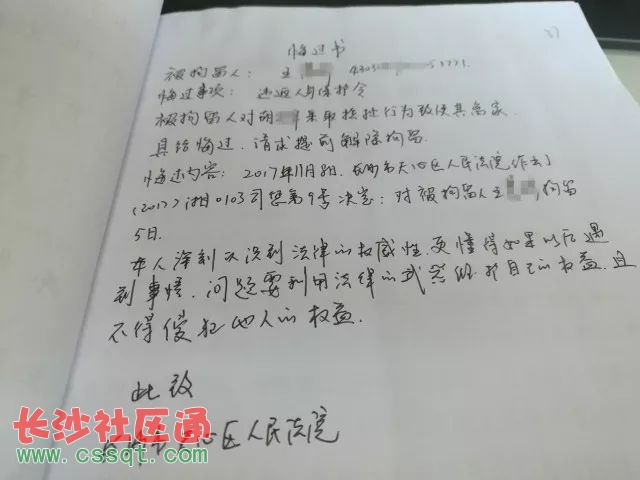 悔过书
被拘留人: 王 4303 5×771.
悔过事项: 违返人身保护令
被拘留人对胡 采取 行为致使其离家.
具结悔过. 请求提前解除拘留.
悔过内容: 2017年11月8日. 长沙市天心区人民法院作出了
(2017)湘0103司惩第9号决定: 对被拘留人王 , 拘留
5日.
本人深刻认识到法律的权威性. 更懂得如果以后遇
到事情. 问题要利用法律的武器维护自己的权益. 且
不得侵犯他人的权益.
此致
心区人民法院
长沙社区通
www.cssqt.com